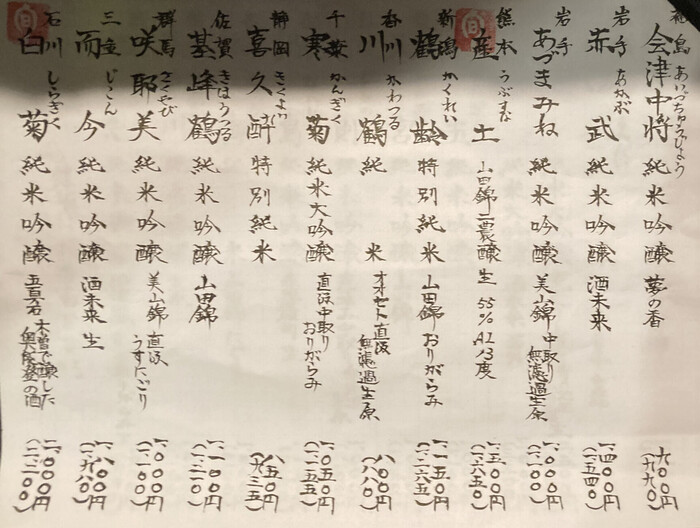 福島 会津中将 あいづちゅうじょう 純米吟醸 夢の香 九〇〇円 (九九〇)
岩手 赤武 あかぶ 純米吟醸 酒未来 一、四〇〇円 (一、五四〇)
岩手 あづまみね 純米吟醸 美山錦 中取り 無濾過生原 一、〇〇〇円 (一、一〇〇)
旬 熊本 産土 うぶすな 山田錦 二農醸 生 55% Al13度 一、五〇〇円 (一、六五〇)
新潟 鶴齢 かくれい 特別純米 山田錦 おりがらみ 一、一五〇円 (一、二六五)
香川 川鶴 かわつる 純米 オオセト 直汲 無濾過生原 八〇〇円 (八八〇)
千葉 寒菊 かんぎく 純米大吟醸 直汲 中取り おりがらみ 一、〇五〇円 (一、一五五)
静岡 喜久酔 きくよい 特別純米 八五〇円 (九三五)
佐賀 基峰鶴 きほうつる 純米吟醸 山田錦 一、一〇〇円 (一、二一〇)
群馬 咲耶美 さくやび 純米吟醸 美山錦 直汲 うすにごり 一、〇〇〇円 (一、一〇〇)
三重 而今 じこん 純米吟醸 酒未来 生 一、八〇〇円 (一、九八〇)
旬 石川 白菊 しらぎく 純米吟醸 五百石 木曽で醸した 奥能登の酒 二、〇〇〇円 (二、二〇〇)